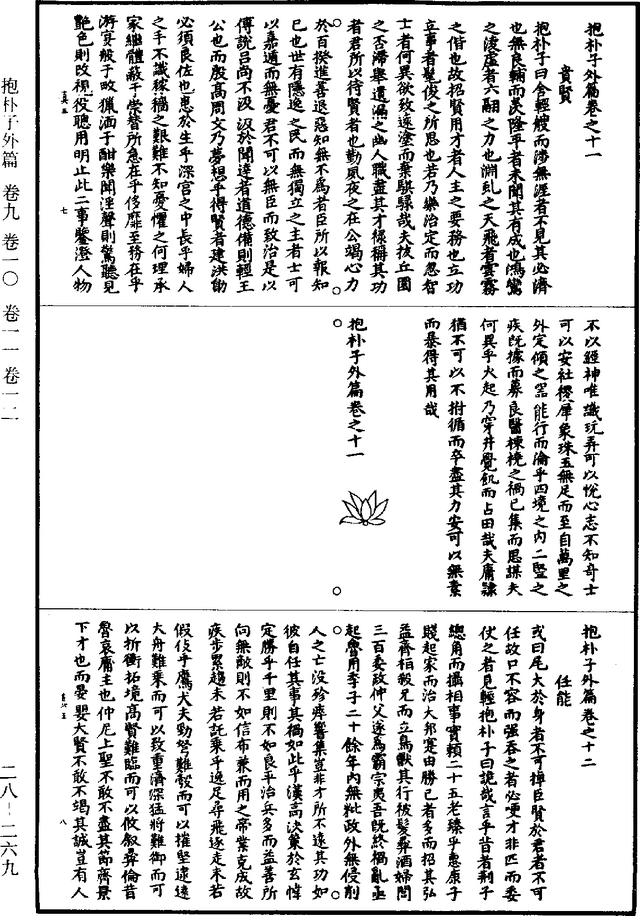 抱朴子外篇卷之十一
貴賢
抱朴子曰舍輕艘而涉無涯者不見其必濟
也無良輔而羨隆平者未聞其有成也鴻鸞
之凌虛者六翮之力也淵虬之天飛者雲霧
之偕也故招賢用才者人主之要務也立功
立事者髦俊之所思也若乃樂治定而忽智
士者何異欲致遠塗而棄騏騄哉夫拔丘園
之否滯舉遺漏之幽人職盡其才祿稱其功
者君所以待賢者也勤夙夜之在公竭心力
於百揆進善退惡知無不為者臣所以報知
已也世有隱逸之民而無獨立之主者士可
以嘉遁而無憂君不可以無臣而致治是以
傅說呂尚不汲汲於聞達者道德備則輕王
公也而殷高周文乃夢想乎得賢者建洪勳
必須良佐也患於生乎深宮之中長乎婦人
之手不識稼穡之艱難不知憂懼之何理承
家繼體蔽乎崇替所急在乎侈靡至務在乎
游宴般于畋獵湎于酣樂聞淫聲則驚聽見
艷色則改視役聰用明止此二事鑒澄人物
七
不以經神唯識玩弄可以悅心志不知奇士
可以安社稷犀象珠玉無足而至自萬里之
外定傾之器能行而淪乎四境之內二豎之
疾既據而募良醫棟橈之禍已集而思謀夫
何異乎火起乃穿井覺飢而占田哉夫庸隸
猶不可以不拊循而卒盡其力安可以無素
而暴得其用哉
抱朴子外篇卷之十一
抱朴子外篇卷之十二
任能
或曰尾大於身者不可掉臣賢於君者不可
任故口不容而強吞之者必哽才非匹而委
仗之者見輕抱朴子曰詭哉言乎昔者荆子
總角而攝相事實賴二十五老臻乎惠康子
賤起家而治大邦寔由勝已者多而招其弘
益齊桓殺兄而立鳥獸其行被髮彝酒婦閭
三百委政仲父遂為霸宗夷吾既終禍亂亟
起魯用季子二十餘年內無粃政外無侵削
人之亡沒殄瘁響集豈非才所不逮其功如
彼自任其事其禍如此乎漢高決策於玄幃
定勝乎千里則不如良平治兵多而益善所
向無敵則不如信布兼而用之帝業克成故
疾步累趨未若託乘乎逸足尋飛逐走未若
假伎乎鷹犬夫勁弩難彀而可以摧堅逮遠
大舟難乘而可以致重濟深猛將難御而可
以折衝拓境高賢難臨而可以攸叙彝倫昔
魯哀庸主也仲尼上聖不敢不盡其節齊景
下才也而晏嬰大賢不敢不竭其誠豈有人
八
抱朴子外篇 卷九 卷一〇 卷一一 卷一二
二八－二六九